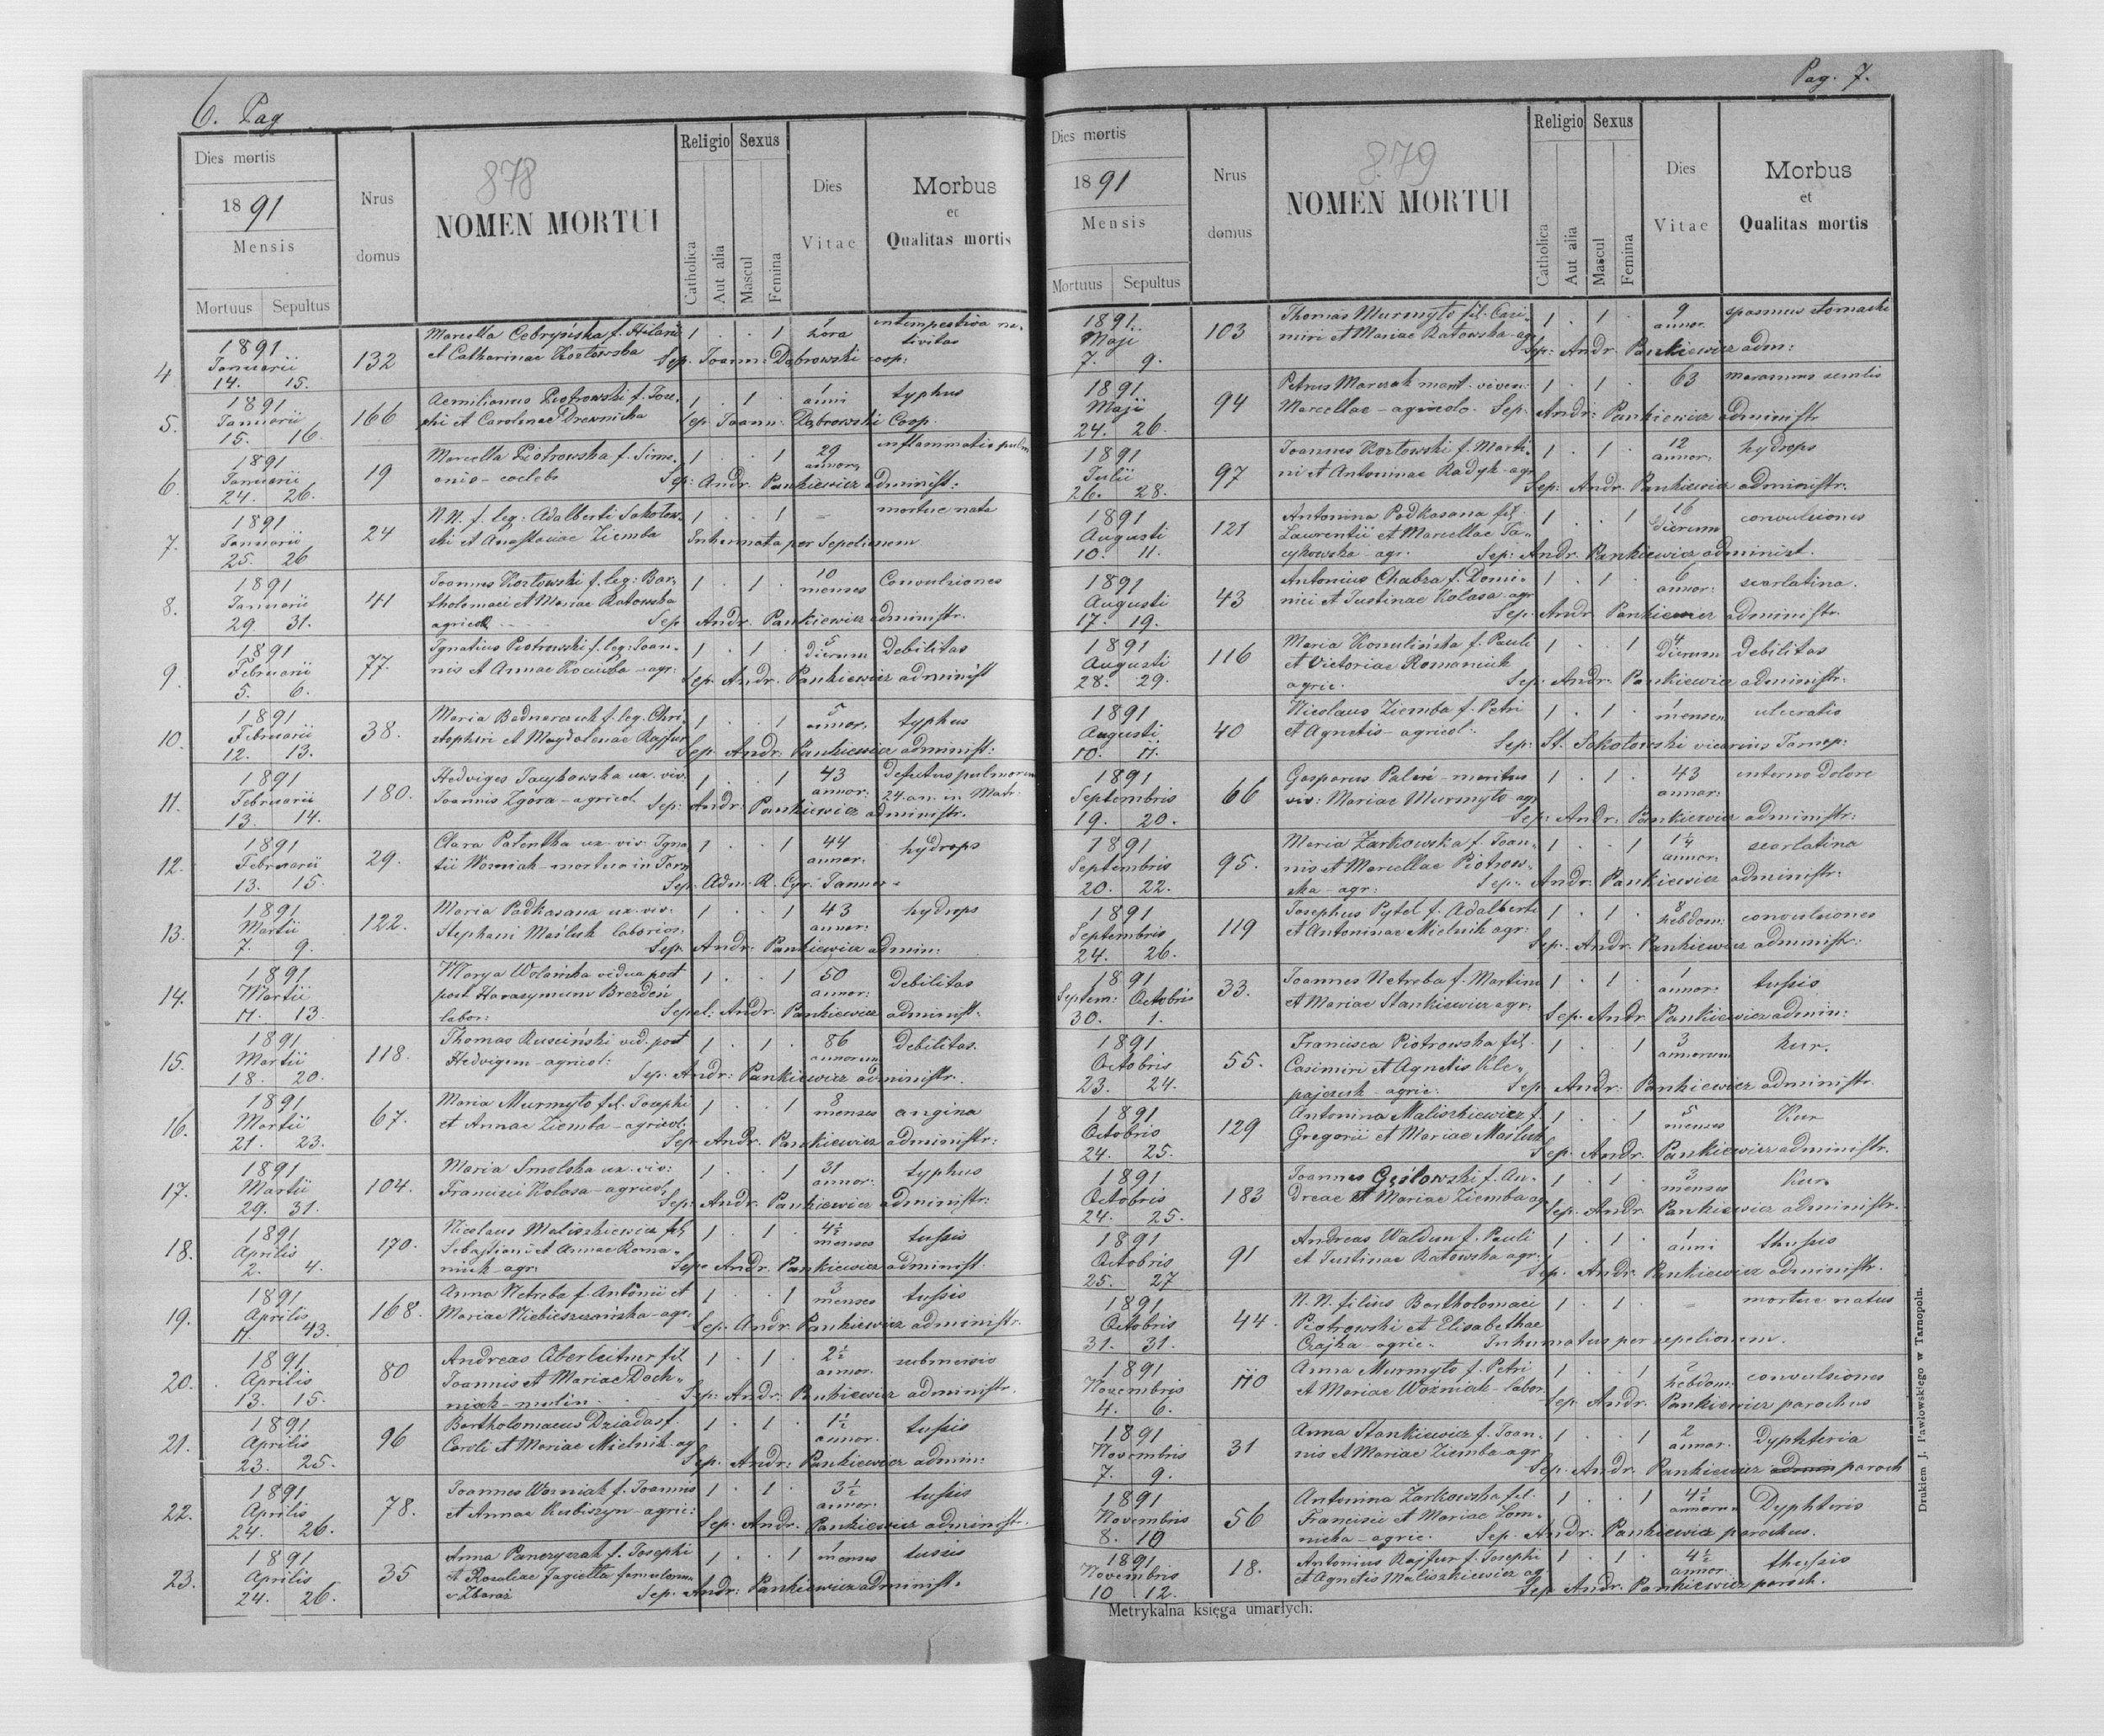 6. Pag
Dies mortis
1891
Mensis
Mortuus Sepultus
Nrus domus
878
NOMEN MORTUI
Religio
Catholica
Aut alia
Sexus
Mascul
Femina
Dies Vitae
Morbus
et
Qualitas mortis
4 1891 Januarii 14. 15. 132
Marcella Cebryńska f. Hilarii 1 . . 1 1 hora intempestiva na-
et Catharinae Kozłowska Sep. Joann: Dąbrowski coop: tivitas
5. 1891 Januarii 15. 16. 166
Aemilianus Piotrowski f. Jose- 1 . 1 . 1 anni typhus
phi et Carolinae Drewnicka Sep. Joann: Dąbrowski Coop.
6. 1891 Januarii 24. 26. 19
Marcella Piotrowska f. Sime- 1 . . 1 29 annor, inflammatio pulm
onis - coelebs Sep: Andr. Pankiewicz administ:
7. 1891 Januarii 25. 26 24
N.N. f. leg: Adalberti Sokołow- 1 . . 1 - mortue nata
ski et Anastasiae Ziemba Inhumata per Sepelionem
8. 1891 Januarii 29 31. 41
Joannes Kozłowski f. leg: Bar- 1 . 1 . 10 menses Convulsiones
tholomaei et Mariae Ratowska
agricol. Sep Andr. Pankiewicz administr.
9. 1891 Februarii 5. 6. 77.
Ignatius Piotrowski f. leg: Joan- 1 . 1 . 5 dierum Debilitas
nis et Annae Kociuba - agr: Sep. Andr. Pankiewicz administ
10. 1891 Februarii 12. 13. 38.
Maria Bednarczuk f. leg. Chri- 1 . . 1 5 annor. typhus
stophori et Magdalenae Rajfur Sep. Andr: Pankiewicz administ:
11. 1891 Februarii 13. 14. 180.
Hedviges Tacykowska ux. viv. 1 . . 1 43 annor: Defutus pulmorum
Joannis Zgora - agricol. Sep: Andr: Pankiewicz administr. 24. an. in Matr:
12. 1891 Februarii 13. 15. 29.
Clara Patentka ux. viv: Igna 1 . . 1 44 annor. hydrops
tii Woźniak - mortua in Tarn Sep. Adm. R. Cyr: Tanner
13. 1891 Martii 7. 9. 122.
Maria Podkasana ux. viv. 1 . . 1 43 annor: hydrops
Stephani Maśluk laborios. Sep. Andr: Pankiewicz admin:
14. 1891 Martii 11. 13.
Marya Wolańska vidua post 1 . . 1 50 annor: Debilitas
post Harasymum Brezdeń
labor: Sepel: Andr: Pankiewicz administ:
15. 1891 Martii 18. 20. 118.
Thomas Rusciński vid. post 1 . 1 . 86 annorum Debilitas.
Hedvigem - agricol: Sep. Andr: Pankiewicz administr.
16. 1891 Martii 21. 23. 67.
Maria Murmyło fil. Josephi 1 . . 1 8 menses angina
et Annae Ziemba - agricol. Sep. Andr. Pankiewicz administr:
17. 1891 Martii 29. 31. 104.
Maria Smolska ux. viv: 1 . . 1 31 annor: typhus
Francisci Kolasa - agricol. Sep: Andr: Pankiewicz administr:
18. 1891 Aprilis 2. 4. 170.
Nicolaus Maliszkiewicz fil. 1 . 1 . 4½ menses tussis
Sebastiani et Annae Roma-
niuk - agr. Sep. Andr. Pankiewicz administ.
19. 1891 Aprilis 11. 13. 168.
Anna Netreba f. Antonii et 1 . . 1 3 menses tussis
Mariae Niebieszczańska - agr. Sep. Andr. Pankiewicz administr.
20. 1891 Aprilis 13. 15. 80
Andreas Aberleitner fil 1 . 1 . 2½ annor. submersio
Joannis et Mariae Doch-
niak - molin. Sep: Andr: Pankiewicz administr.
21. 1891 Aprilis 23. 25. 96
Bartholomaeus Dziadas f. 1 . 1 . 1½ annor. tussis
Caroli et Mariae Mielnik - ag Sep. Andr: Pankiewicz admin:
22. 1891 Aprilis 24. 26. 78.
Joannes Woźniak f. Joannis 1 . 1 . 3½ annor. tussis
et Annae Kubiszyn - agric: Sep. Andr. Pankiewicz administr.
23. 1891 Aprilis 24. 26. 35
Anna Panczyszak f. Josephi 1 . . 1 1 menses tussis
et Rosaliae Jagiełła famulorum
e Zbaraż Sep. Andr: Pankiewicz administ.
Pag. 7.
Dies mortis
1891
Mensis
Mortuus Sepultus
Nrus domus
879
NOMEN MORTUI
Religio
Catholica
Aut alia
Sexus
Mascul
Femina
Dies Vitae
Morbus
et
Qualitas mortis
1891. Maji 7. 9. 103
Thomas Murmyło fil. Casi- 1 . 1 . 9 annor. spasmus stomachi
miri et Mariae Ratowska - agr Sep: Andr. Pankiewicz adm:
1891 Maji 24. 26. 94
Petrus Marczak marit. viven. 1 . 1 . 63 marasmus senilis
Marcellae - agricolo. Sep. Andr: Pankiewicz administr
1891 Julii 26. 28. 97
Joannes Kozłowski f. Marti- 1 . 1 . 12 annor, hydrops
ni et Antoninae Radyk - agr Sep: Andr. Pankiewicz administr.
1891 Augusti 10. 11. 121
Antonina Podkasana fil. 1 . . 1 16 dierum convulsiones
Laurentii et Marcellae Ta-
cykowska - agr. Sep: Andr. Pankiewicz administ.
1891 Augusti 17. 19. 43
Antonius Chabza f. Domi- 1 . 1 . 6 annor: scarlatina.
nici et Justinae Kolasa - agr Sep. Andr Pankiewicz administr.
1891 Augusti 28. 29. 116
Maria Komulińska f. Pauli 1 . . 1 4 dierum debilitas
et Victoriae Romaniuk
agric. Sep. Andr. Pankiewicz administr:
1891 Augusti 10. 11. 40
Nicolaus Ziemba f. Petri 1 . 1 . 1 mensem ulceratio
et Agnetis - agricol. Sep: St. Sokołowski vicarius Tarnop:
1891 Septembris 19. 20. 66
Gasparus Paluń - maritus 1 . 1 . 43 annor: interno dolore
viv: Mariae Murmyło - agr Sep: Andr: Pankiewicz administr:
1891 Septembris 20. 22. 95.
Maria Żarkowska f. Joan- 1 . . 1 1¼ annor. scarlatina
nis et Marcellae Piotrow-
ska - agr: Sep. Andr: Pankiewicz administr:
1891 Septembris 24. 26. 119
Josephus Pytel f. Adalberti 1 . 1 . 8 hebdom: convulsiones
et Antoninae Mielnik agr: Sep. Andr. Pankiewicz administr:
1891 Septem: Octobris 30. 1. 33.
Joannes Netreba f. Martini 1 . 1 . 1 annor: tussis
et Mariae Stankiewicz - agr. Sep. Andr. Pankiewicz admin:
1891 Octobris 23. 24. 55.
Francisca Piotrowska fil. 1 . . 1 3 annorum kur.
Casimiri et Agnetis Kle-
pajczuk - agric. Sep. Andr: Pankiewicz administr.
1891 Octobris 24. 25. 129
Antonina Maliszkiewicz f. 1 . . 1 5 menses Kur
Gregorii et Mariae Maśluk Sep. Andr. Pankiewicz administr.
1891 Octobris 24. 25. 183
Joannes Gęślowski f. An- 1 . 1 . 3 menses Kur.
dreae et Mariae Ziemba ag Sep. Andr. Pankiewicz administr.
1891 Octobris 25. 27 91
Andreas Waldun f. Pauli 1 . 1 . 1 anni thussis
et Justinae Ratowska agr. Sep. Andr. Pankiewicz administr.
1891 Octobris 31. 31. 44.
N. N. filius Bartholomaei 1 . 1 . - mortue natus
Piotrowski et Elisabethae
Czajka - agric. Inhumatus per sepelionem.
1891 Novembris 4. 6. 110
Anna Murmyło f. Petri 1 . . 1 2 hebdom: convulsiones
et Mariae Woźniak - labor. Sep. Andr. Pankiewicz parochus
1891 Novembris 7. 9. 31
Anna Stankiewicz f. Joan- 1 . . 1 2 annor. Dyphteria
nis et Mariae Ziemba - agr Sep. Andr. Pankiewicz admin paroch
1891 Novembris 8. 10 56
Antonina Żarkowska fil. 1 . . 1 4½ annorum Dyphteris
Francisci et Mariae Łom-
nicka - agric. Sep. Andr: Pankiewicz parochus.
1891 Novembris 10 12. 18.
Antonius Rajfur f. Josephi 1 . 1 . 4½ annor. thussis
et Agnetis Maliszkiewicz ag Sep Andr. Pankiewicz paroch.
Metrykalna księga umarłych:
Drukiem J. Pawlowskiego w Tarnopolu.